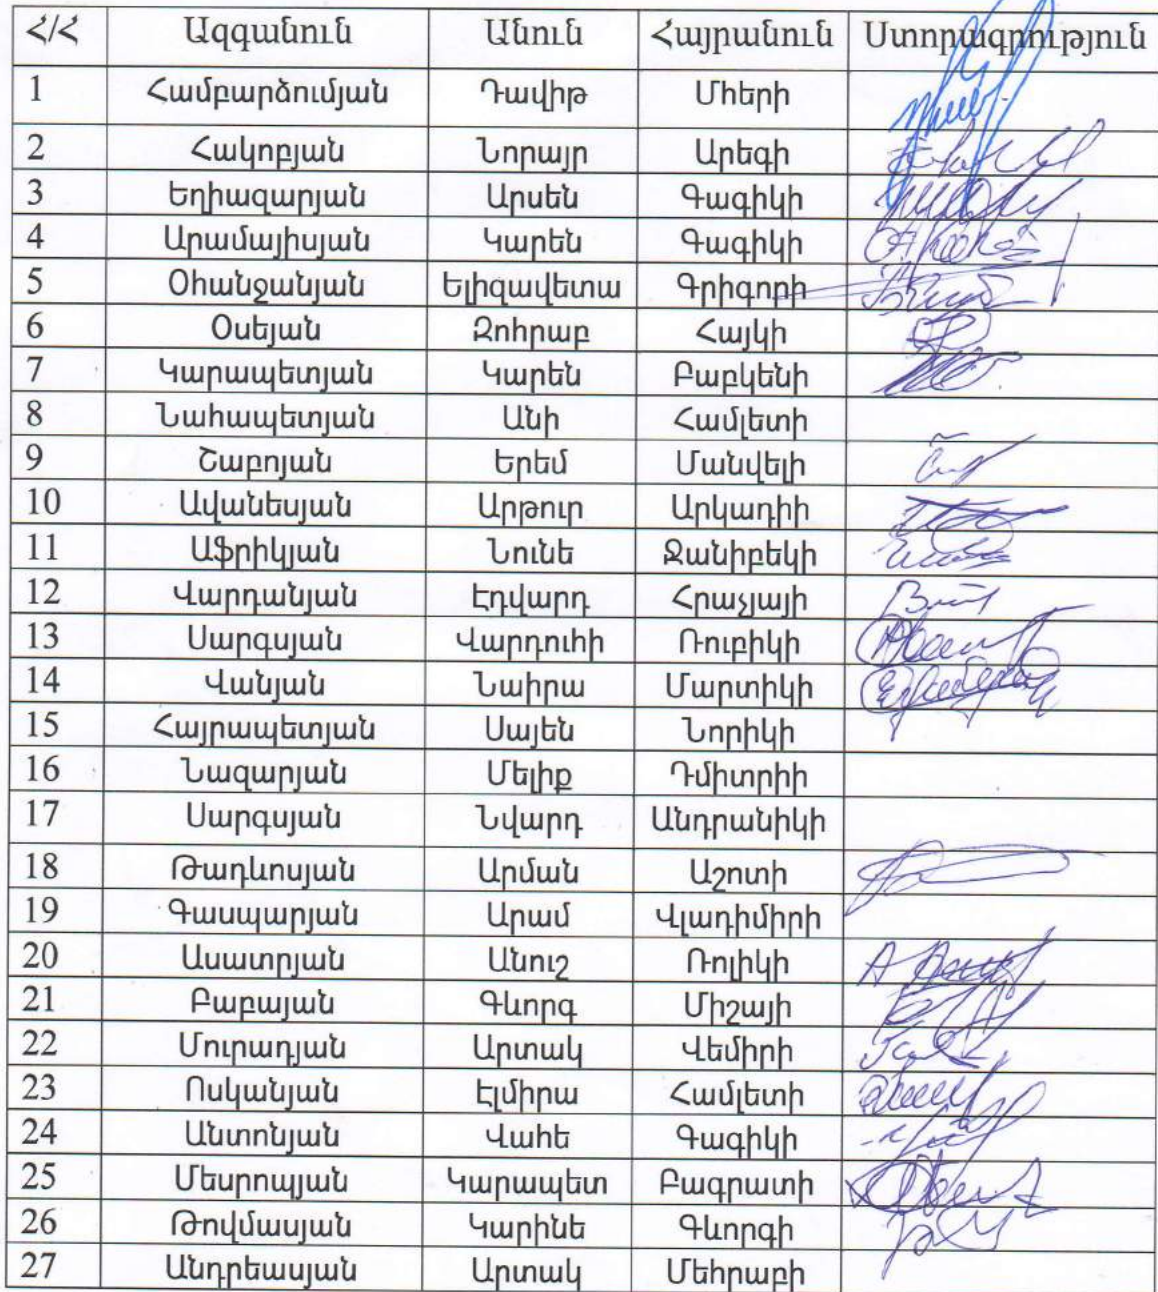 Հ/Հ Ազգանուն Անուն Հայրանուն Ստորագրություն
1 Համբարձումյան Դավիթ Մհերի
2 Հակոբյան Նորայր Արեգի
3 Եղիազարյան Արսեն Գագիկի
4 Արամայիսյան Կարեն Գագիկի
5 Օհանջանյան Ելիզավետա Գրիգորի
6 Օսեյան Զոհրաբ Հայկի
7 Կարապետյան Կարեն Բաբկենի
8 Նահապետյան Անի Համլետի
9 Շաբոյան Երեմ Մանվելի
10 Ավանեսյան Արթուր Արկադիի
11 Աֆրիկյան Նունե Ջանիբեկի
12 Վարդանյան Էդվարդ Հրաչյայի
13 Սարգսյան Վարդուհի Ռուբիկի
14 Վանյան Նաիրա Մարտիկի
15 Հայրապետյան Սայեն Նորիկի
16 Նազարյան Մելիք Դմիտրիի
17 Սարգսյան Նվարդ Անդրանիկի
18 Թադևոսյան Արման Աշոտի
19 Գասպարյան Արամ Վլադիմիրի
20 Ասատրյան Անուշ Ռոլիկի
21 Բաբայան Գևորգ Միշայի
22 Մուրադյան Արտակ Վեմիրի
23 Ոսկանյան Էլմիրա Համլետի
24 Անտոնյան Վահե Գագիկի
25 Մեսրոպյան Կարապետ Բագրատի
26 Թովմասյան Կարինե Գևորգի
27 Անդրեասյան Արտակ Մեհրաբի